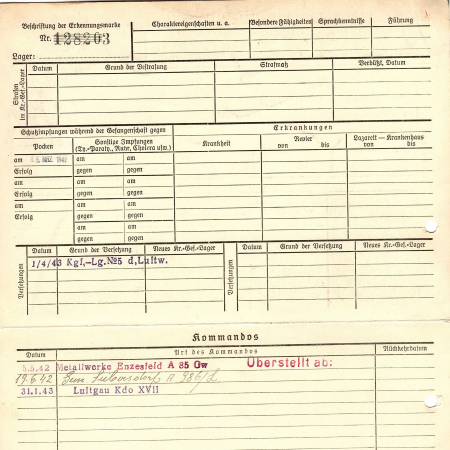 Beschriftung der Erkennungsmarke
Nr. 128203
Lager:
Charaktereigenschaften u. a.
Besondere Fähigkeiten
Sprachkenntnisse
Führung
Strafen im Kr.-Gef.-Lager
Datum
Grund der Bestrafung
Strafmaß
Verbüßt, Datum
Schutzimpfungen während der Gefangenschaft gegen
Erkrankungen
Pocken
Sonstige Impfungen
(Ty.-Paraty., Ruhr, Cholera usw.)
Krankheit
Revier
von bis
Lazarett — Krankenhaus
von bis
am MRZ. 1942 am am
Erfolg gegen gegen
am am am
Erfolg gegen gegen
am am am
Erfolg gegen gegen
am am
gegen gegen
Versetzungen
Datum
Grund der Versetzung
Neues Kr.-Gef.-Lager
Versetzungen
Datum
Grund der Versetzung
Neues Kr.-Gef.-Lager
1/4/43 Kgf.-Lg.№5 d,Luftw.
Kommandos
Datum
Art des Kommandos
Rückkehrdatum
5.5.42 Metallwerke Enzesfeld A 85 Gw Überstellt ab:
19.6.42 A 986/L
31.1.43 Luftgau Kdo XVII